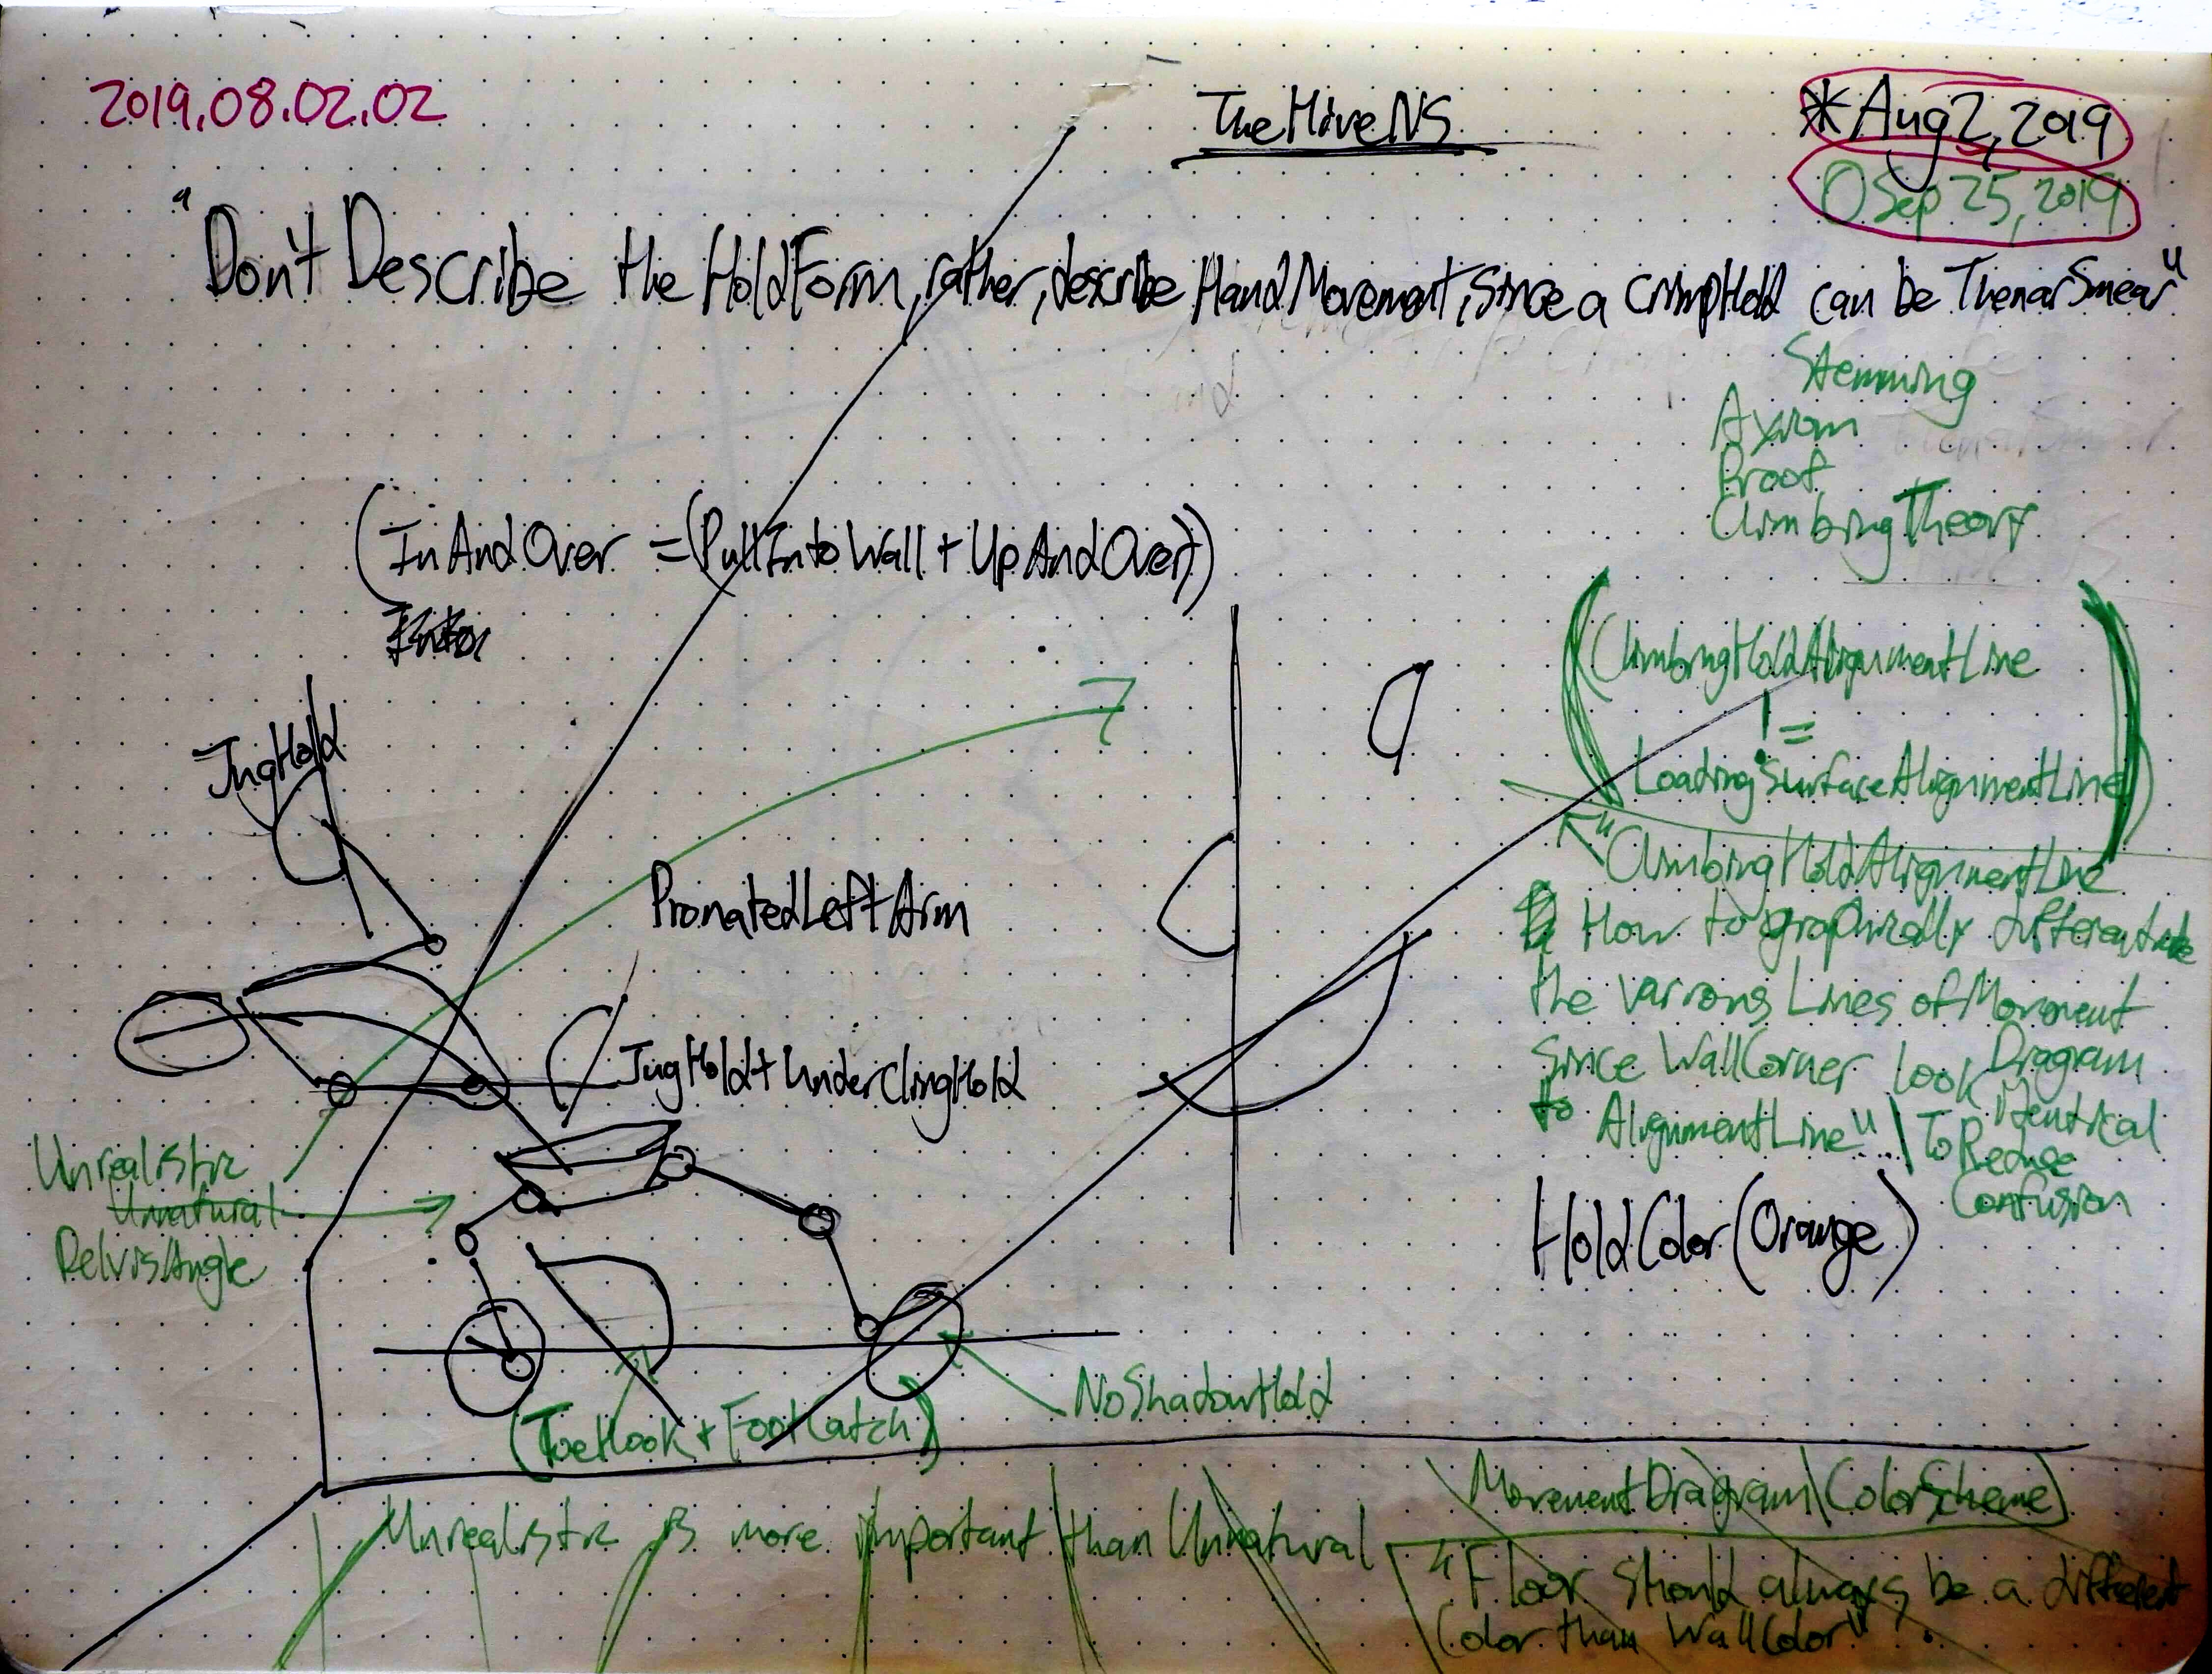 2019.08.02.02
TheHiveNS
*Aug2,2019
Sep 25,2019
"Don't Describe the HoldForm, rather, describe HandMovement, Since a CrimpHold can be ThenarSmear"
Stemming
Axiom
Proof
ClimbingTheory
(InAndOver = (PullIntoWall + UpAndOver))
(ClimbingHoldAlignmentLine
!=
LoadingSurfaceAlignmentLine)
JugHold
"ClimbingHoldAlignmentLine
How to graphically differentiate
the various Lines of Movement
Diagram
Since WallCorner look identical
to AlignmentLine"... \ To Reduce
Confusion
PronatedLeftArm
JugHold+UnderclingHold
Unrealistic
Unnatural
PelvisAngle
HoldColor(Orange)
NoShadowHold
(ToeHook + FootCatch)
Unrealistic is more important than Unnatural
MovementDiagram\(ColorScheme)
"Floor should always be a different
Color than WallColor"